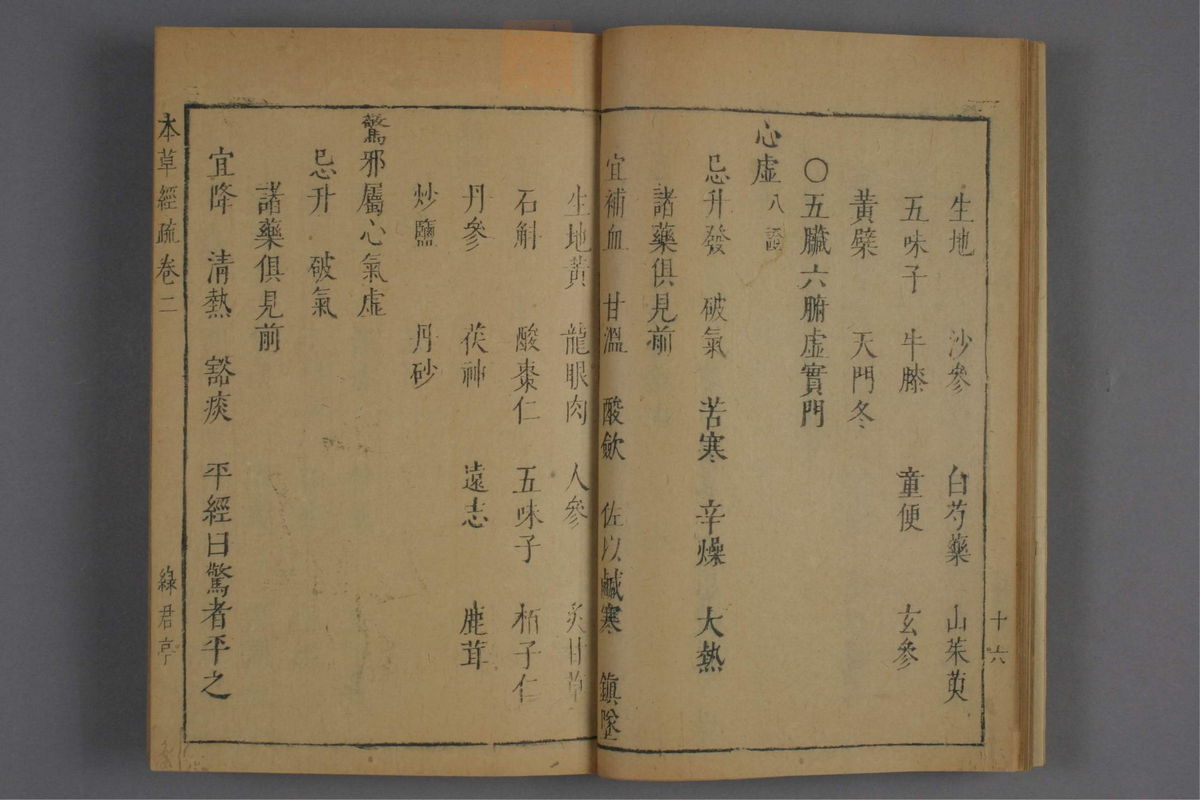 十六
生地　沙參　白芍藥　山茱萸
五味子　牛膝　童便　玄參
黃檗　天門冬
〇五臟六腑虛實門
心虛八證
忌升發　破氣　苦寒　辛燥　大熱
諸藥俱見前
宜補血　甘溫　酸斂　佐以鹹寒　鎮墜
生地黃　龍眼肉　人參　炙甘草
石斛　酸棗仁　五味子　栢子仁
丹參　茯神　遠志　鹿茸
炒鹽　丹砂
驚邪屬心氣虛
忌升　破氣
諸藥俱見前
宜降　清熱　豁痰　平經曰驚者平之
本草經疏　卷二　綠君亭